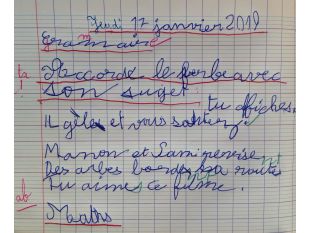 Jeudi 17 janvier 2019
Grammaire
Accorde le verbe avec
son sujet.
tu affiches.
Il gèle et vous sautez
Manon et Sami pensent
Des arbes bordent la route
Tu aimes ce filme.
Maths